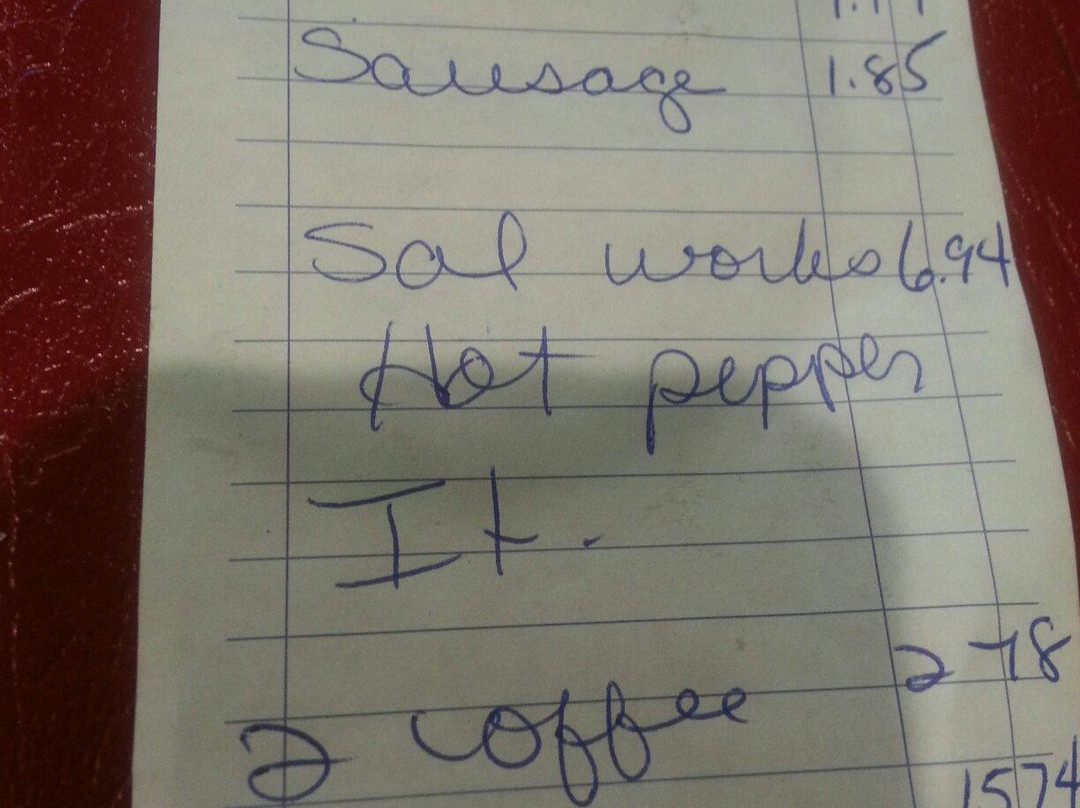 Sausage 1.85
Sal works 6.94
Hot pepper
It.
2 78
2 coffee
1574